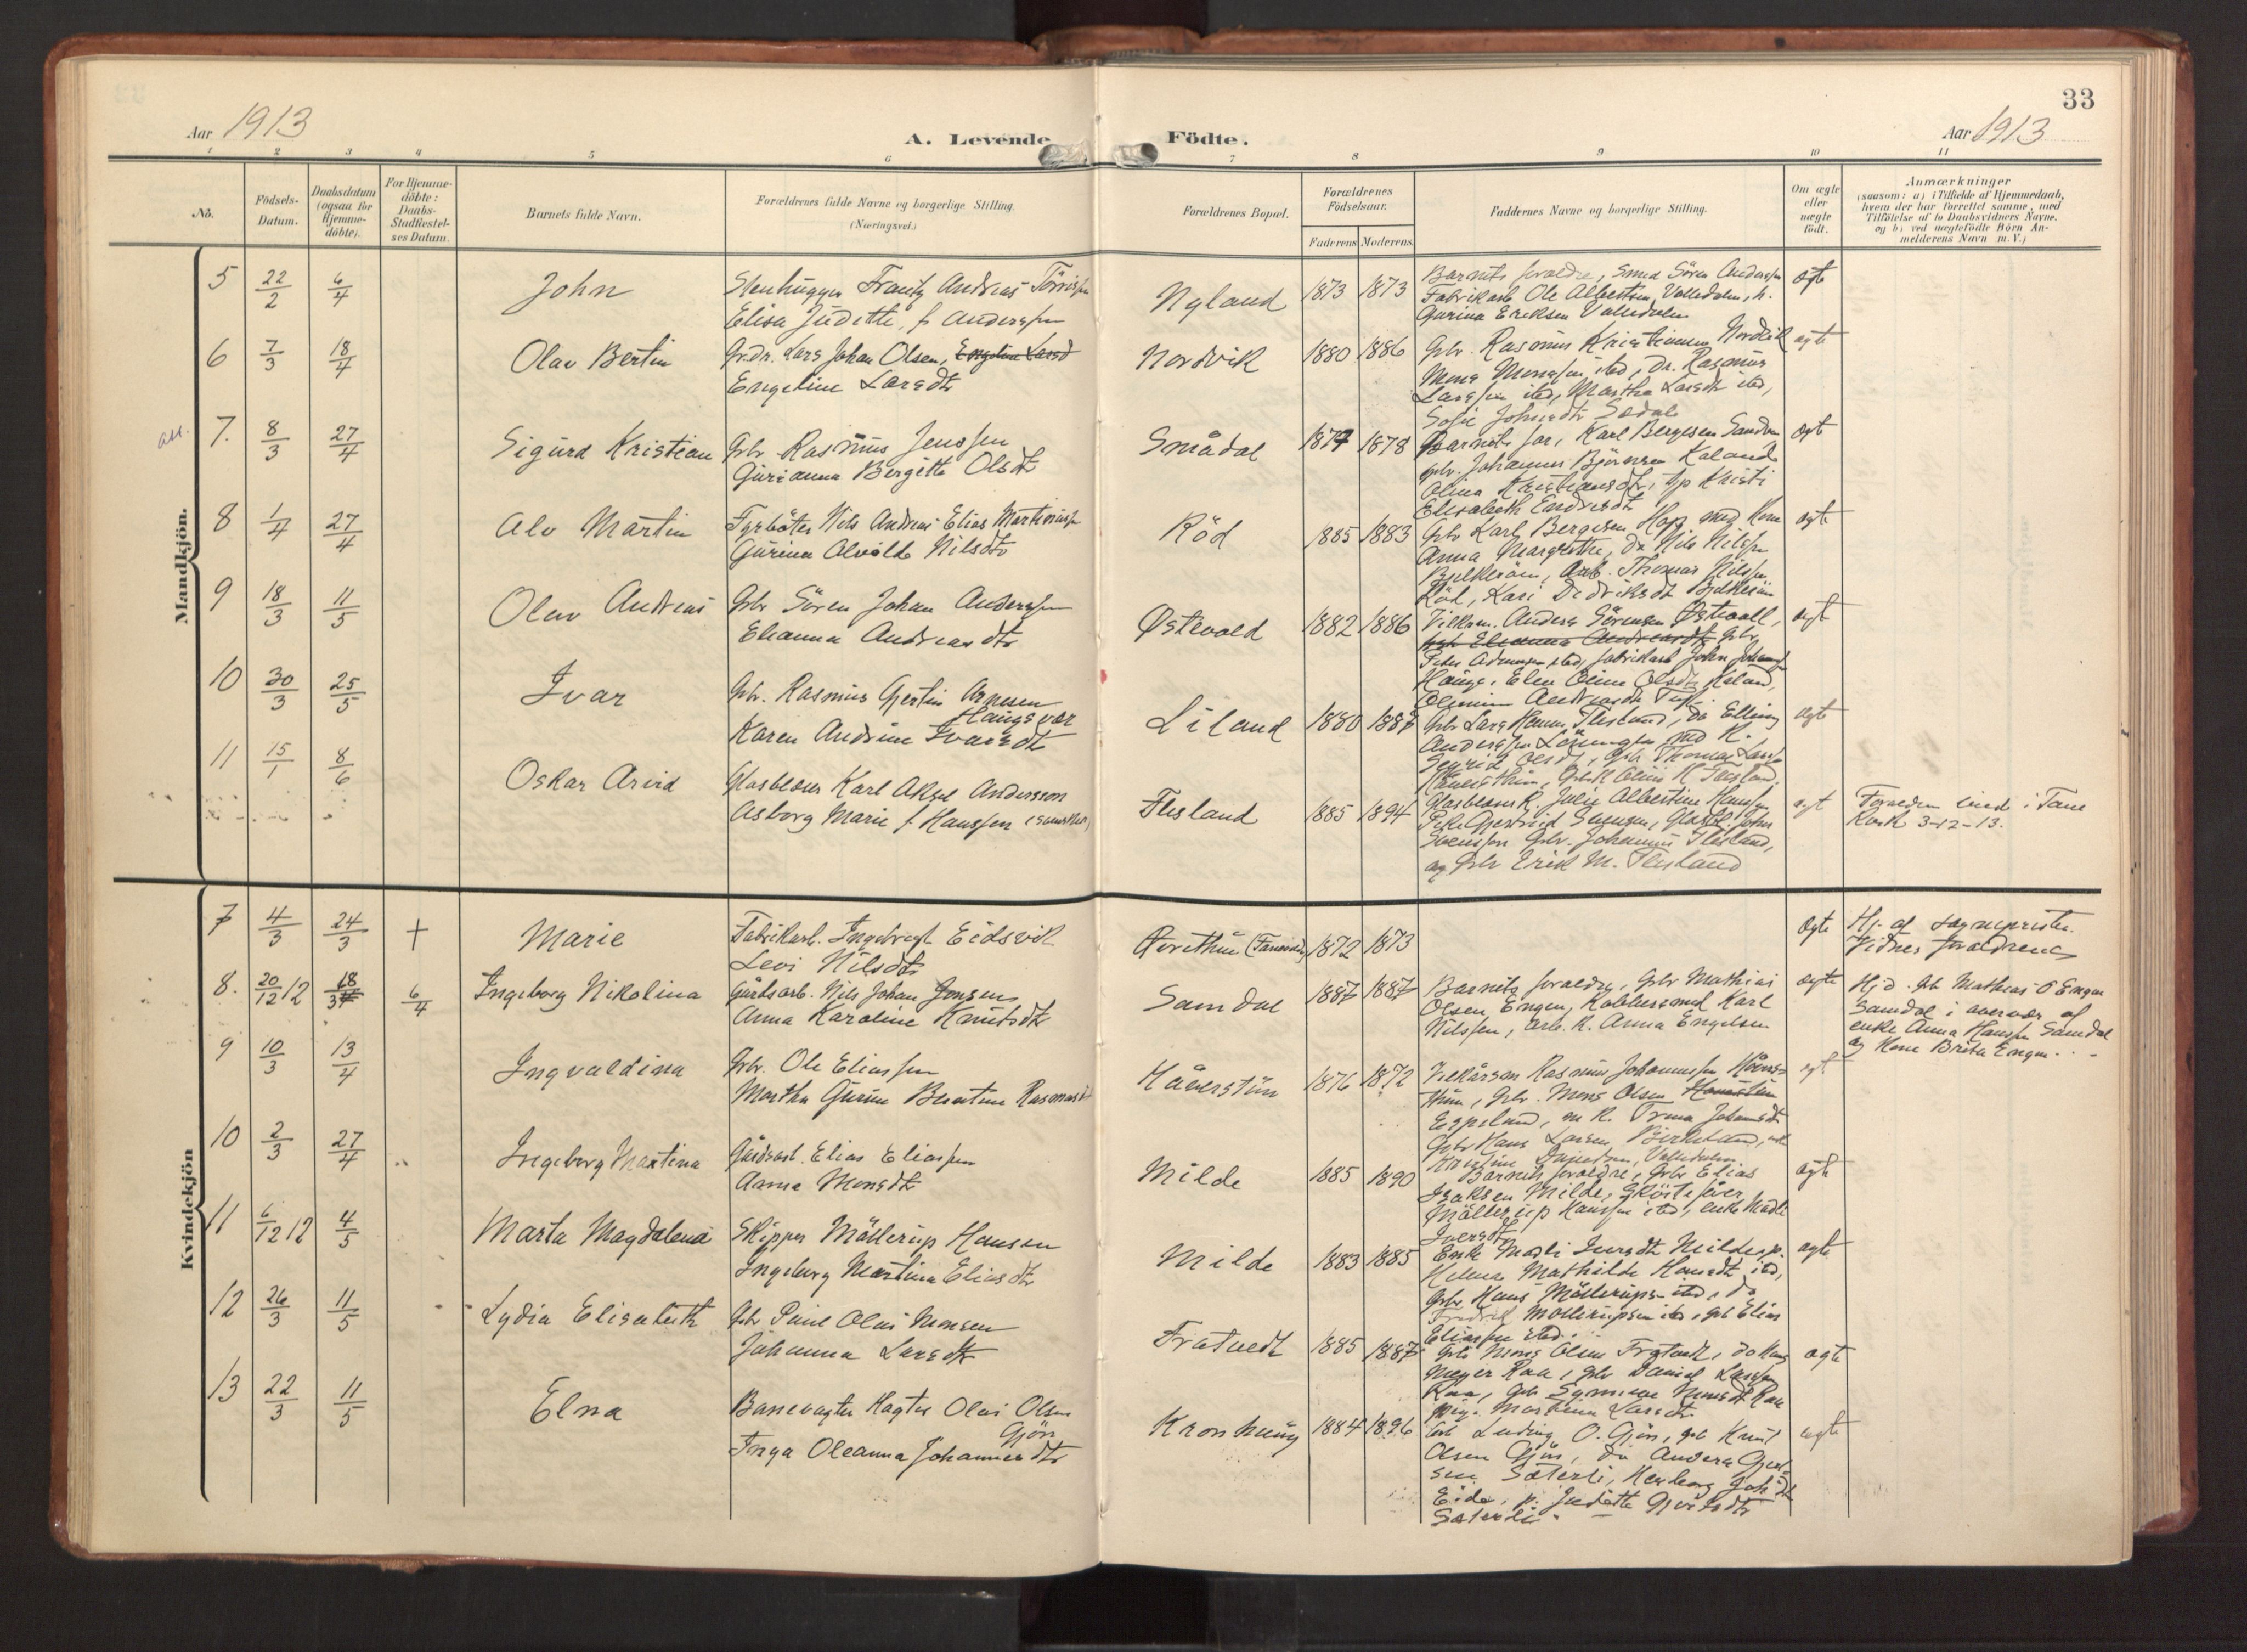 33
Aar 1913
A. Levende Födte.
Aar 1913
1 2 3 4 5 6 7 8 9 10 11
No.
Födsels-Datum.
Daabsdatum (ogsaa for Hjemme-döbte).
For Hjemme-döbte: Daabs-Stadfæstel-ses Datum.
Barnets fulde Navn.
Forældrenes fulde Navne og borgerlige Stilling. (Næringsvei.)
Forældrenes Bopæl.
Forældrenes Födselsaar.
Faderens Moderens
Faddernes Navne og borgerlige Stilling.
Om ægte eller uægte födt.
Anmærkninger
(saasom: a) i Tilfælde af Hjemmedaab,
hvem der har forrettet samme, med
Tilföielse af to Daabsvidners Navne,
og b) ved uægtefödte Börn An-
melderens Navn m. V.)
Mandkjön.
5 22/2 6/4 John
Stenhugger Frantz Andreas
Elisa Judithe, f. Anderssen
Nyland 1873 1873
Barnets foraldre, Smed Sören Anderssen
Fabrikarb Ole Albertsen Valledalen, h.
Gurina Eriksen Valledalen
ægte
6 7/3 18/4 Olav Bertin
Gr.dr. Lars Johan Olsen, Engeline Larsd
Engeline Larsdtr
Nordvik 1880 1886
Gbr. Rasmus Kristiansen Nordvik
Mons Monssen itsd, Dr. Rasmus
Larssen itsd, Martha Larsdtr itsd,
Sofie Johnsdtr Sædal
ægte
7. 8/3 27/4 Sigurd Kristian
Gbr Rasmus Jenssen
Gurianna Bergitte Olsdtr
Smådal 1877 1878
Barnets far, Karl Bergesen Sandven
Gbr. Johannes Björnsen Kaland
Olina Kristiansdtr, Kristi
Elisabeth
ægt
8 1/4 27/4 Alv Martin
Fyrböter Nils Andreas Elias Martinussen
Gurina Alvilde Nilsdtr
Röd 1885 1883
Gbr Karl Bergesen Hop med Kone
Anna Margrethe, Dr Nils Nilssen
Arb. Thomas Nilssen
Röd, Kari Didriksdtr
ægte
9 18/3 11/5 Olav Andreas
Gbr Sören Johan Anderssen
Elianna Andreasdtr
Østevold 1882 1886
Anders Sörensen Østevoll,
Elianna Andreasdtr Gbr
Peter Adamsen itsd, fabrikarb John Johannessen
Hauge, Elen Oline Olsdtr Kaland,
Andreasdtr
ægt
10 30/3 25/5 Ivar
Gbr. Rasmus Gjertin Arnesen
Haugsvær
Karen Andrine Ivarsdtr
Liland 1880 1887
Gbr Lars Hansen Flesland, Do Elling
Anderssen med K.
Olsdtr, Gbr Thomas Larssen
Flesland.
ægte
11 15/1 8/6 Oskar Arvid
Glasblæser Karl Aksel Andersson
Asborg Marie f Hanssen
Flesland 1885 1894
Glasblæserk. Julie Albertine Hanssen
Pike Gjertrud Svensen, Glasbl. John
Svenssen Gbr. Johannes Flesland,
og Gbr Erik M. Flesland
ægt
Foraldrene viet i Fane
Kirk 3-12-13.
Kvindekjön
7 4/3 24/3 + Marie
Fabrikarb. Ingebregt Eidsvik
Levi Nilsdtr
1872 1873
ægte
Hj. af sogneprsten.
Vidner foraldrene
8. 20/12 12 18/3 6/4 Ingeborg Nikolina
Gårdsarb. Nils Johan Jonsen
Anna Karoline Knutsdtr
Samdal 1887 1887
Barnets foraldre, Gbr Mathias
Olsen Engen, Kobbersmed Karl
Nilssen, arb. K. Anna Engelsen
ægte
Hj.d. Gb Mathias O Engen
Samdal i overvær af
enke Anna Hanssen Samdal
og Kone Brita Engen.
9 10/3 13/4 Ingvaldina
Gbr. Ole Eliassen
Martha Gurine Berntine Rasmusd
Håverstün 1876 1872
Rasmus Johannessen Håvers-
thun, Gbr. Mons Olsen
Espeland, m K. Trina Johansdtr
Gbr Hans Larsen Birkeland,
Valledalen
ægt
10 2/3 27/4 Ingeborg Martina
Gårdsarb. Elias Eliassen
Anna Monsdtr
Milde 1885 1890
Barnets foraldre, Gbr Elias
Isaksen Milde,
Möllerup Hanssen itsd, enke Madli
Iversdtr
ægte
11 6/12 12 4/5 Marta Magdalena
Skipper Möllerup Hansen
Ingeborg Martina Eliasdtr
Milde 1883 1885
Enke Madli Iversdtr Milde, p.
Helena Mathilde Hansdtr itsd,
Gbr Hans Möllerupsen itsd, Do
Fredrik Möllerupsen itsd, Gbr Elias
Eliassen itsd.
ægte
12 26/3 11/5 Lydia Elisabeth
Gbr Paul Olai Monsen
Johanna Larsdtr
Fratvedt 1885 1887
Gbr Mons Olsen Fratvedt, do Hans
Meyer Raa, Gbr Daniel Larssen
Raa, Gbr Monsdtr Raa
Pige Martina Larsdtr
ægte
13 22/3 11/5 Elna
Banevogter Hagtor Olai Olsen
Gjön
Inga Oleanna Johannesdtr
Kronhaug 1884 1896
Arb Ludvig O. Gjön, gb Knut
Olsen Gjön, Do Anders Gjert-
sen Sæterli, Herborg Joh.dtr
Eide, p. Judithe Gjertsdtr
Sæterli.
ægte